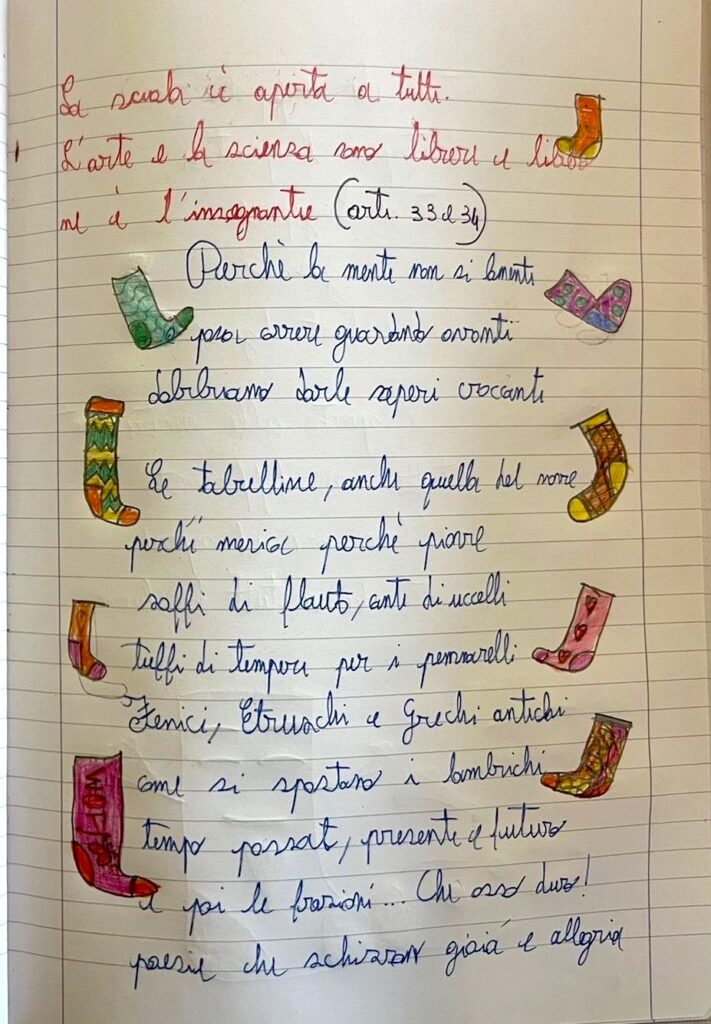 La scuola è aperta a tutti.
L'arte e la scienza sono libere e libero
ne è l'insegnante (artt. 33 e 34)
Perchè la mente non si lamenti
possa correre guardando avanti
dobbiamo darle saperi croccanti
Le tabelline, anche quella del nove
perchè nevica perchè piove
soffi di flauto, canti di uccelli
tuffi di tempera per i pennarelli
Fenici, Etruschi e Grechi antichi
come si spostano i lombrichi
tempo passato, presente e futuro
e poi le frazioni... Che osso duro!
poesie che schizzan gioia e allegria